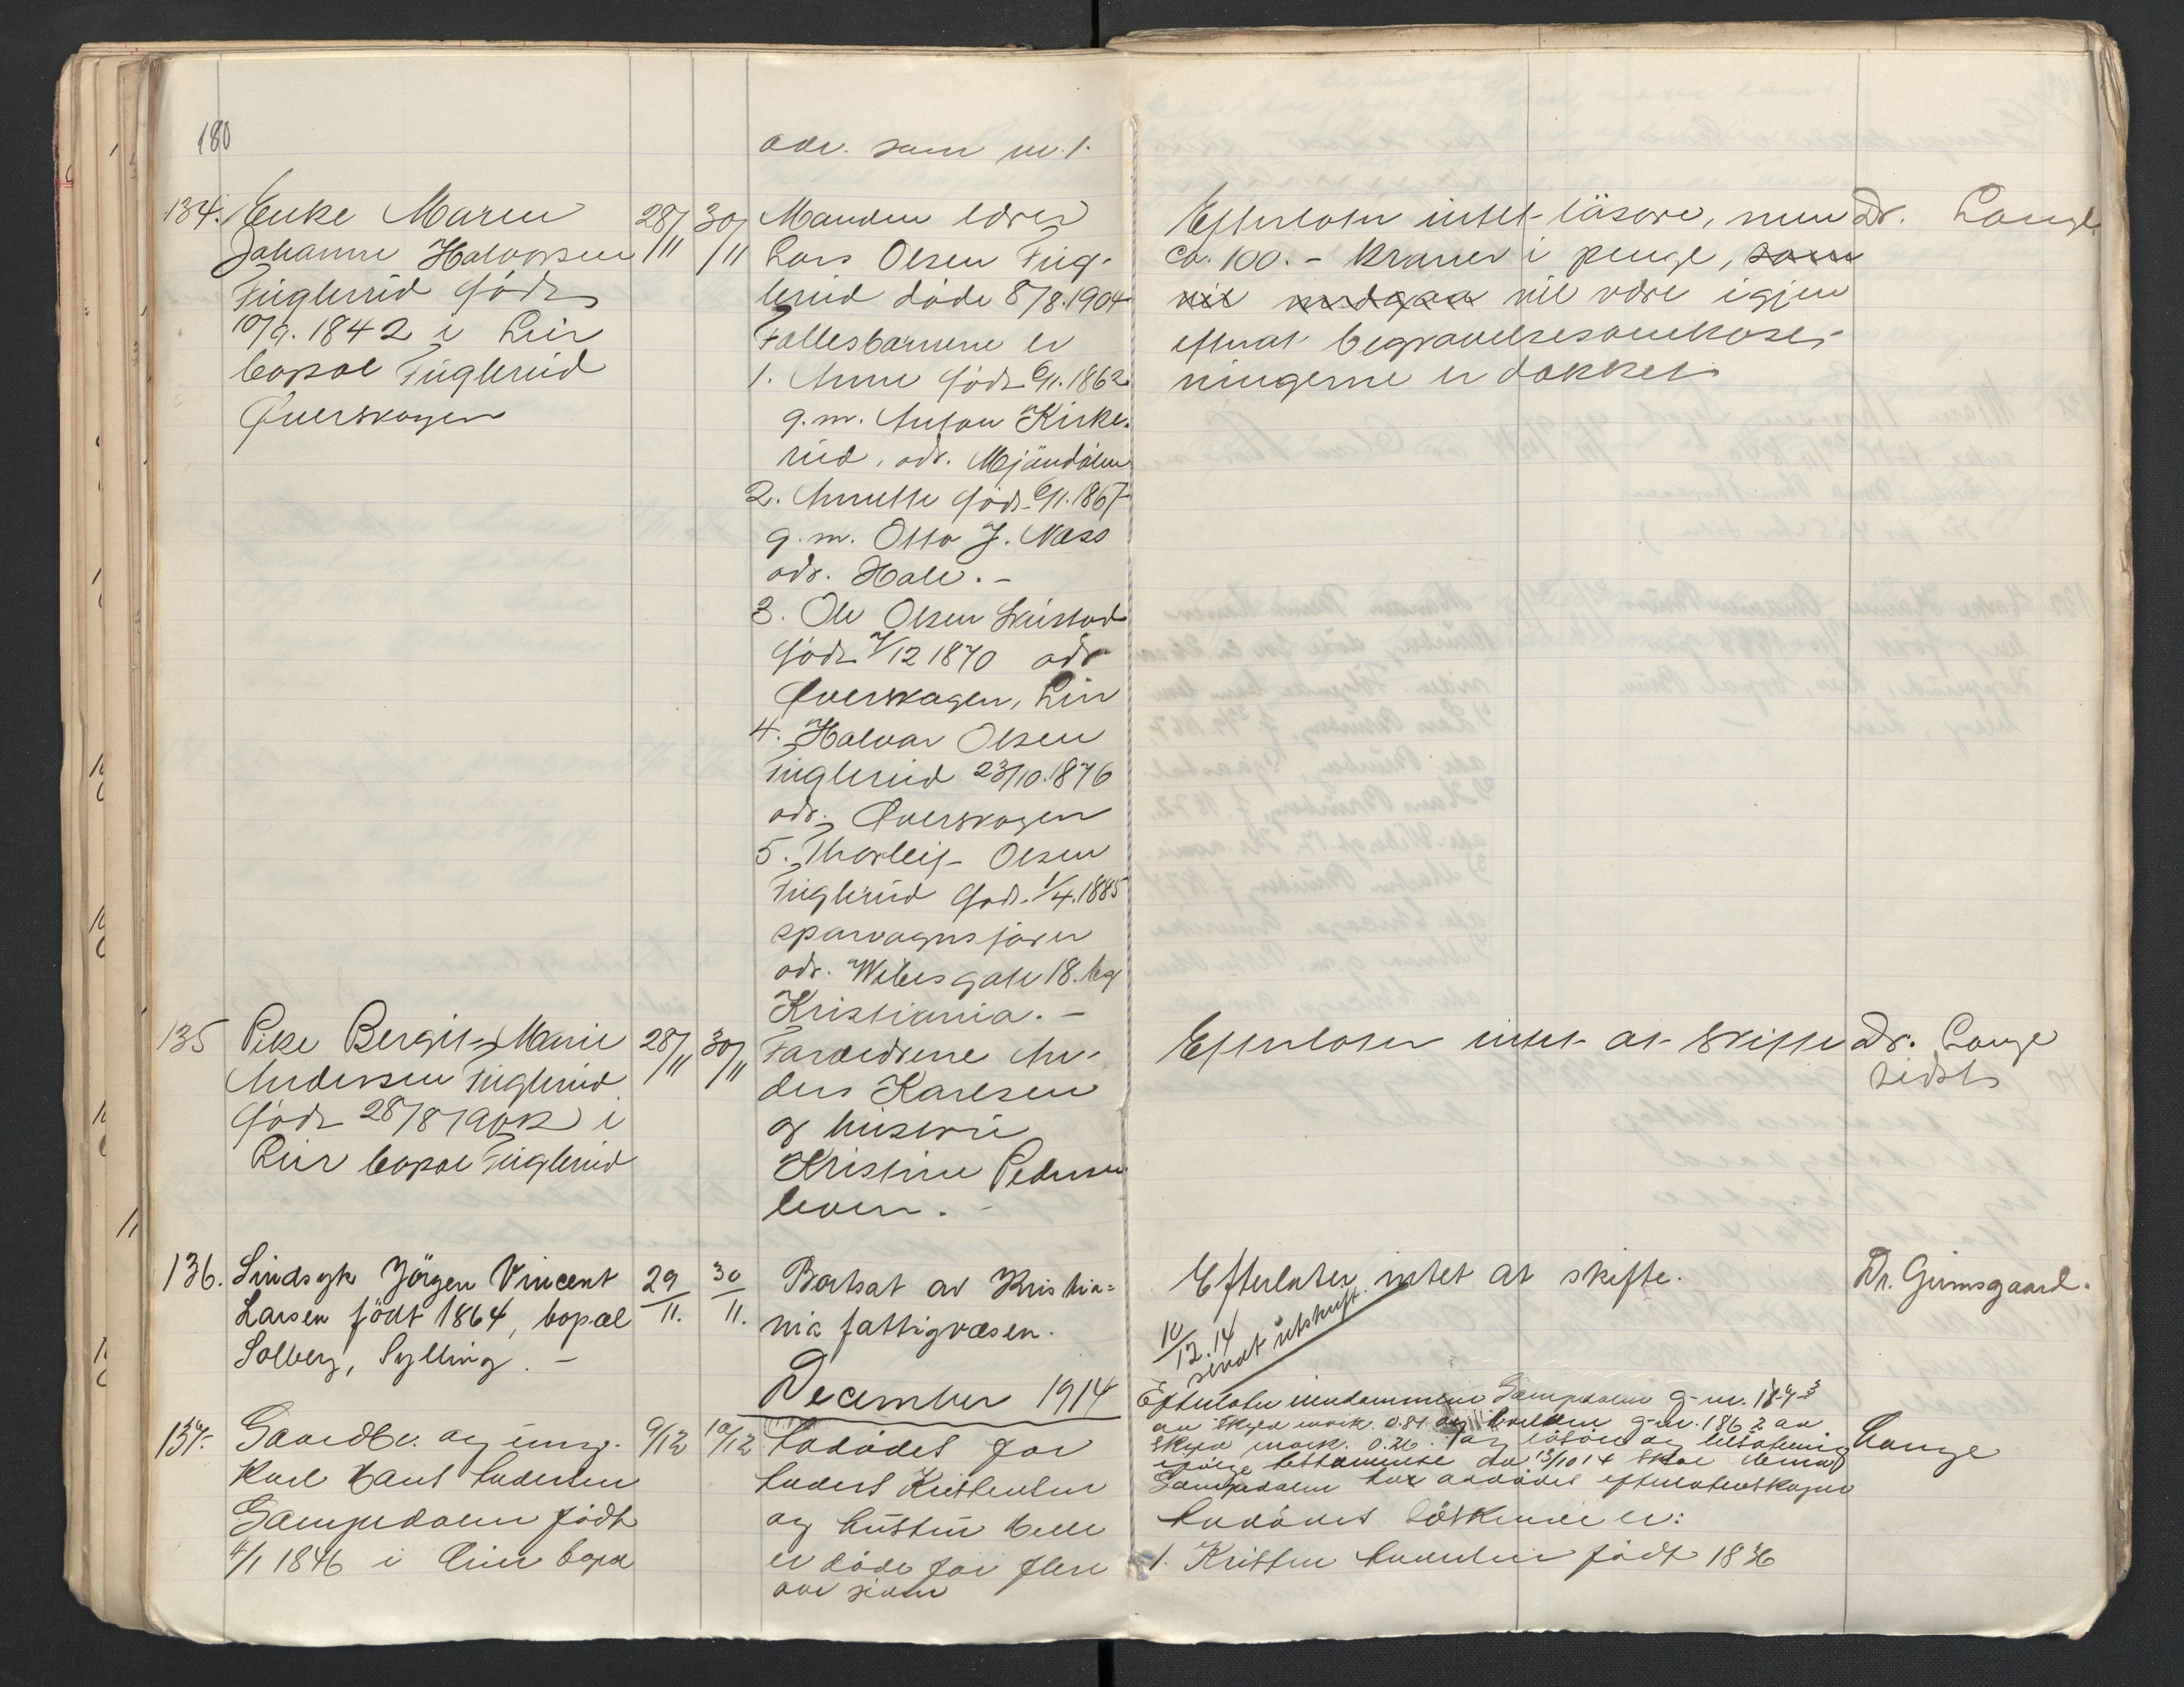 180
adr. som nr. 1.
134. Enke Maren
Johanne Halvorsen
Fuglerud födt
10/9. 1842 i Lier
bopæl Fuglerud
Överskogen
28/11
30/11
Manden
Lars Olsen Fug-
lerud döde 8/8. 1904
Fællesbarnene er
1. Anne födt 6/1. 1862
g. m. Anton Kirke-
rud, adr. Mjöndalen
2. Annette födt 6/11. 1867
g. m. Otto J. Næss
adr. Hole. -
3. Ole Olsen
födt 7/12 1870 adr
Överskogen, Lier
4. Halvor Olsen
Fuglerud 23/10. 1876
adr. Överskogen
5. Thorleif Olsen
Fuglerud födt 1/4. 1885
sporvognsfører
adr. Wibes gate 18.
Kristiania. -
Efterlater intet lösöre, men
ca. 100. - kroner i penge, som
vil medgaa vil være igjen
efterat begravelsesomkost-
ningerne er dækket
Dr. Lange
135 Pike Bergit Marie
Andersen Fuglerud
födt 28/8 1902 i
Lier bopæl Fuglerud
28/11
30/11
Forældrene An-
ders Karlsen
og hustru
Kristine Pedersen
lever. -
Efterlater intet at skifte
Dr. Lange
sidst
136. Sindsyk Jörgen Vincent
Larsen födt 1864, bopæl
Solberg, Sylling. -
29/11.
30/11.
Bortsat av Kristia-
nia fattigvæsen.
Efterlater intet at skifte.
Dr. Grimsgaard.
10/12. 14
sendt utskrift.
December 1914
137. Gaardbr. og ungk.
Karl Hans Andersen
Gampedalen födt
4/1 1846 i Lier bopæl
9/12
10/12
Avdödes far
Anders Kristensen
og hustru
er döde for flere
aar siden
Efterlater eiendommene Gampedalen g-nr.
av skyld mark. 0.81 og g-nr. 186 2 av
skyld mark. 0.26. og lösöre og
ifölge testamente av 13/10 14 skal
Gampedalen har avdödes efterlatenskaper
Avdödes söskende er:
1. Kristen Andersen födt 1836
Lange